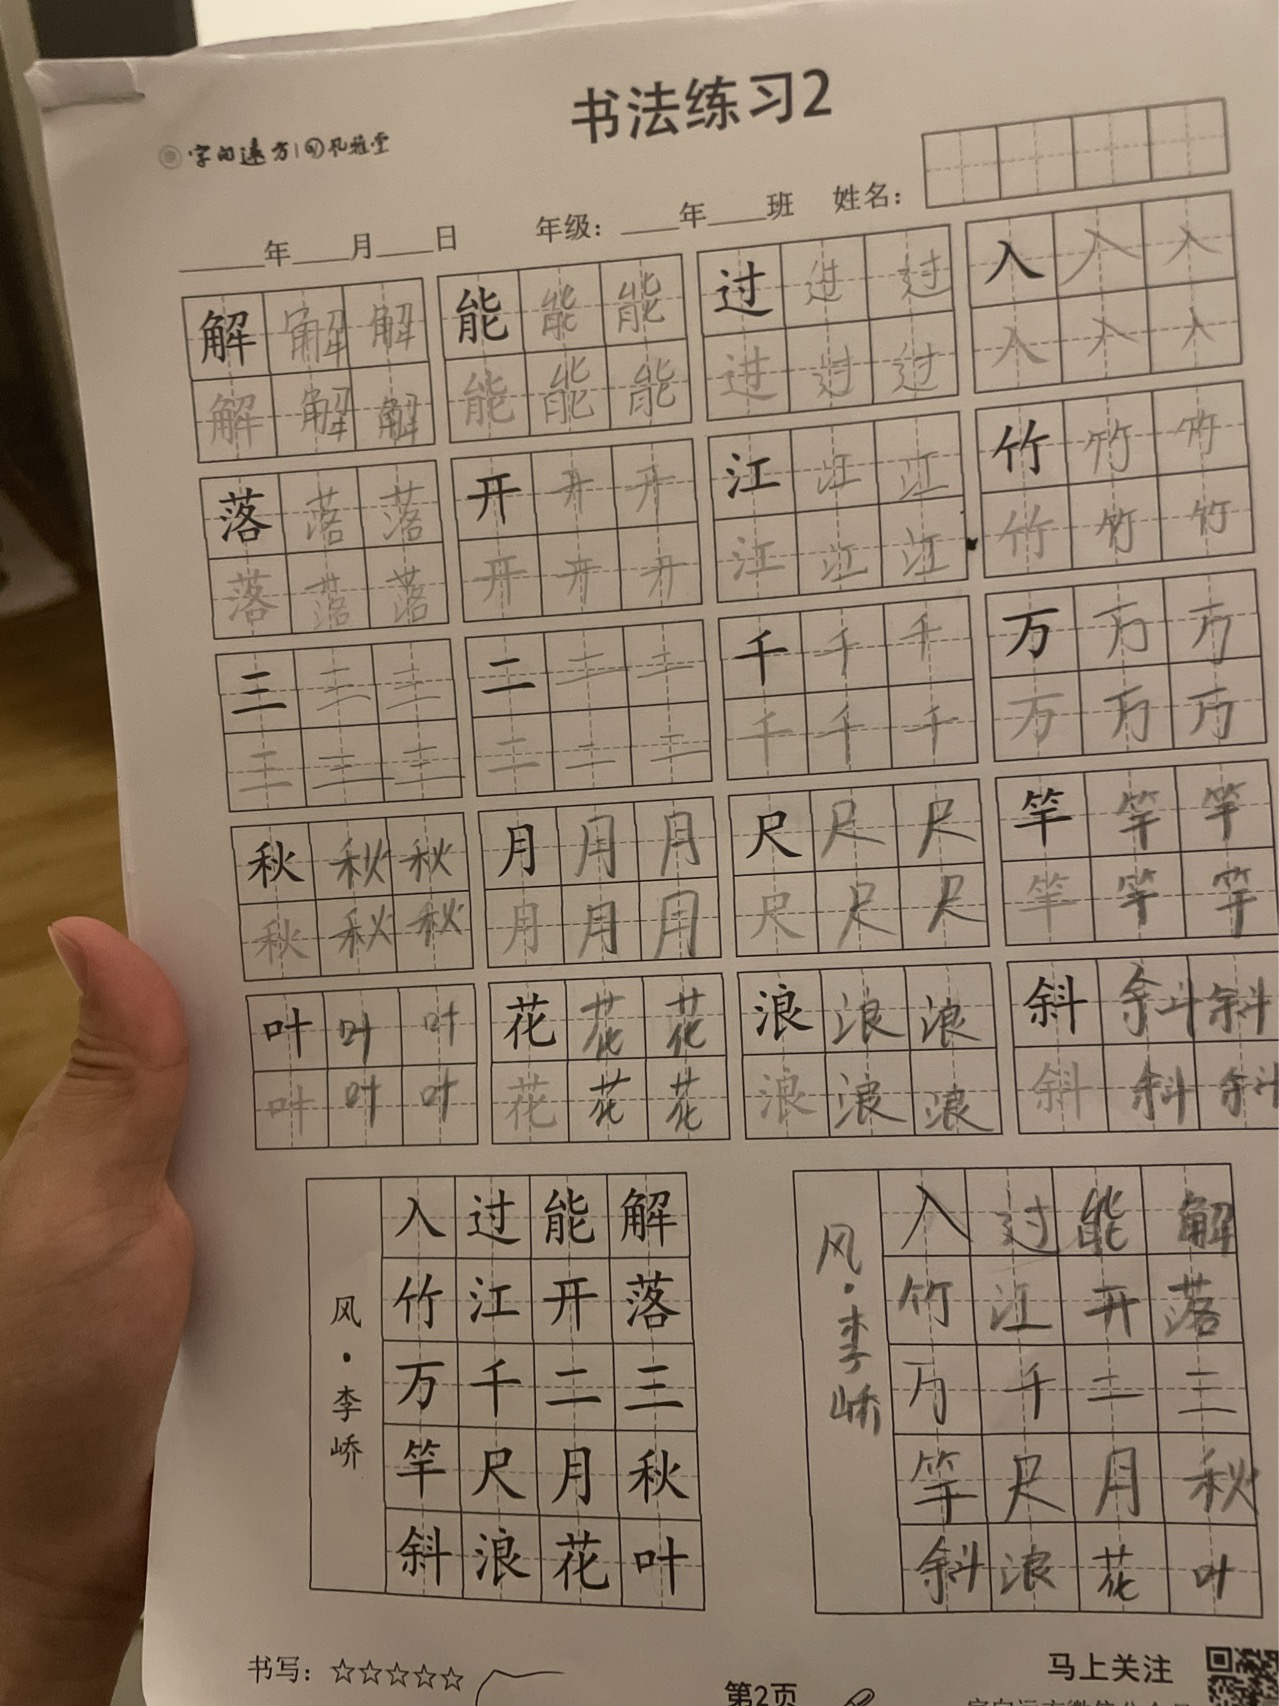 书法练习2
字向远方
年 月 日 年级： 年 班 姓名：
解 解 解 能 能 能 过 过 过 入 入 入
解 解 解 能 能 能 过 过 过 入 入 入
落 落 落 开 开 开 江 江 江 竹 竹 竹
落 落 落 开 开 开 江 江 江 竹 竹 竹
三 三 三 二 二 二 千 千 千 万 万 万
三 三 三 二 二 二 千 千 千 万 万 万
秋 秋 秋 月 月 月 尺 尺 尺 竿 竿 竿
秋 秋 秋 月 月 月 尺 尺 尺 竿 竿 竿
叶 叶 叶 花 花 花 浪 浪 浪 斜 斜 斜
叶 叶 叶 花 花 花 浪 浪 浪 斜 斜 斜
解落三秋叶
能开二月花
过江千尺浪
入竹万竿斜
风·李峤
解落三秋叶
能开二月花
过江千尺浪
入竹万竿斜
风·李峤
书写：☆☆☆☆☆
第2页
马上关注